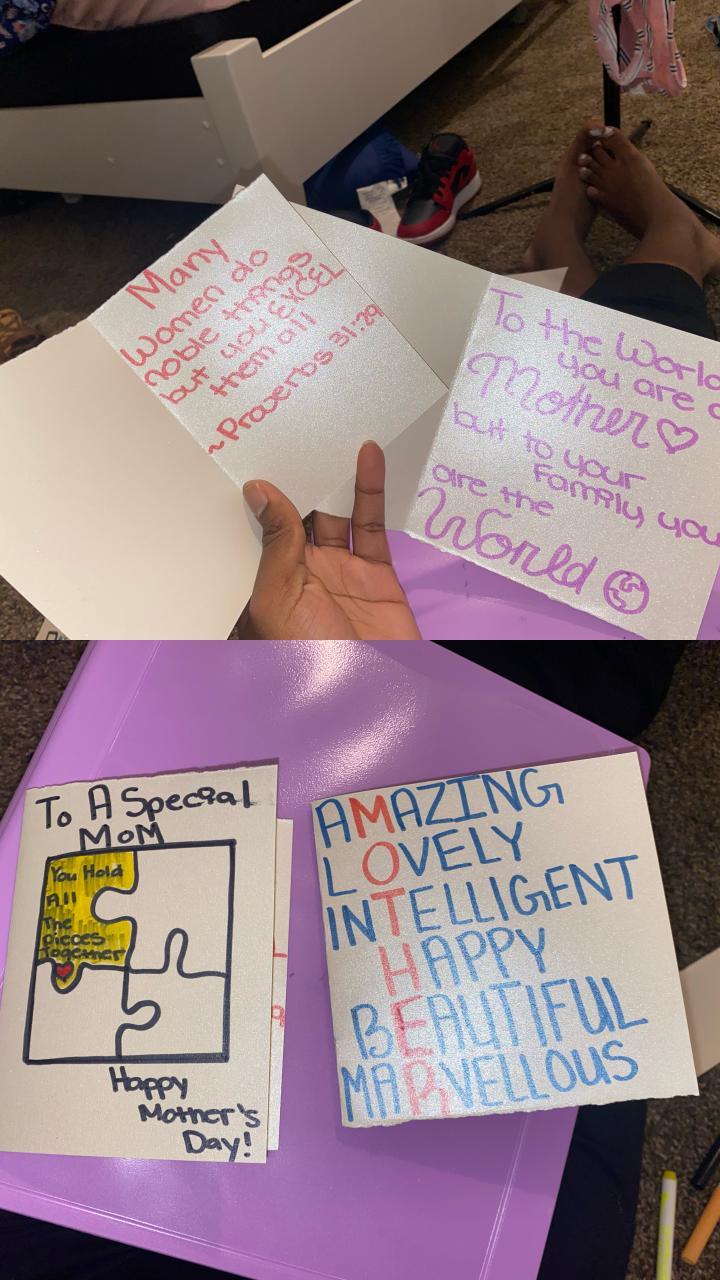 Many
Women do
noble things
but you EXCEL
them all
~Proverbs 31:29
To the World
you are a
Mother♡
but to your
Family you
are the
World
To A Special
MoM
You Hold
All
The
pieces
Together
Happy
Mother's
Day!
AMAZING
LOVELY
INTELLIGENT
HAPPY
BEAUTIFUL
MARVELLOUS